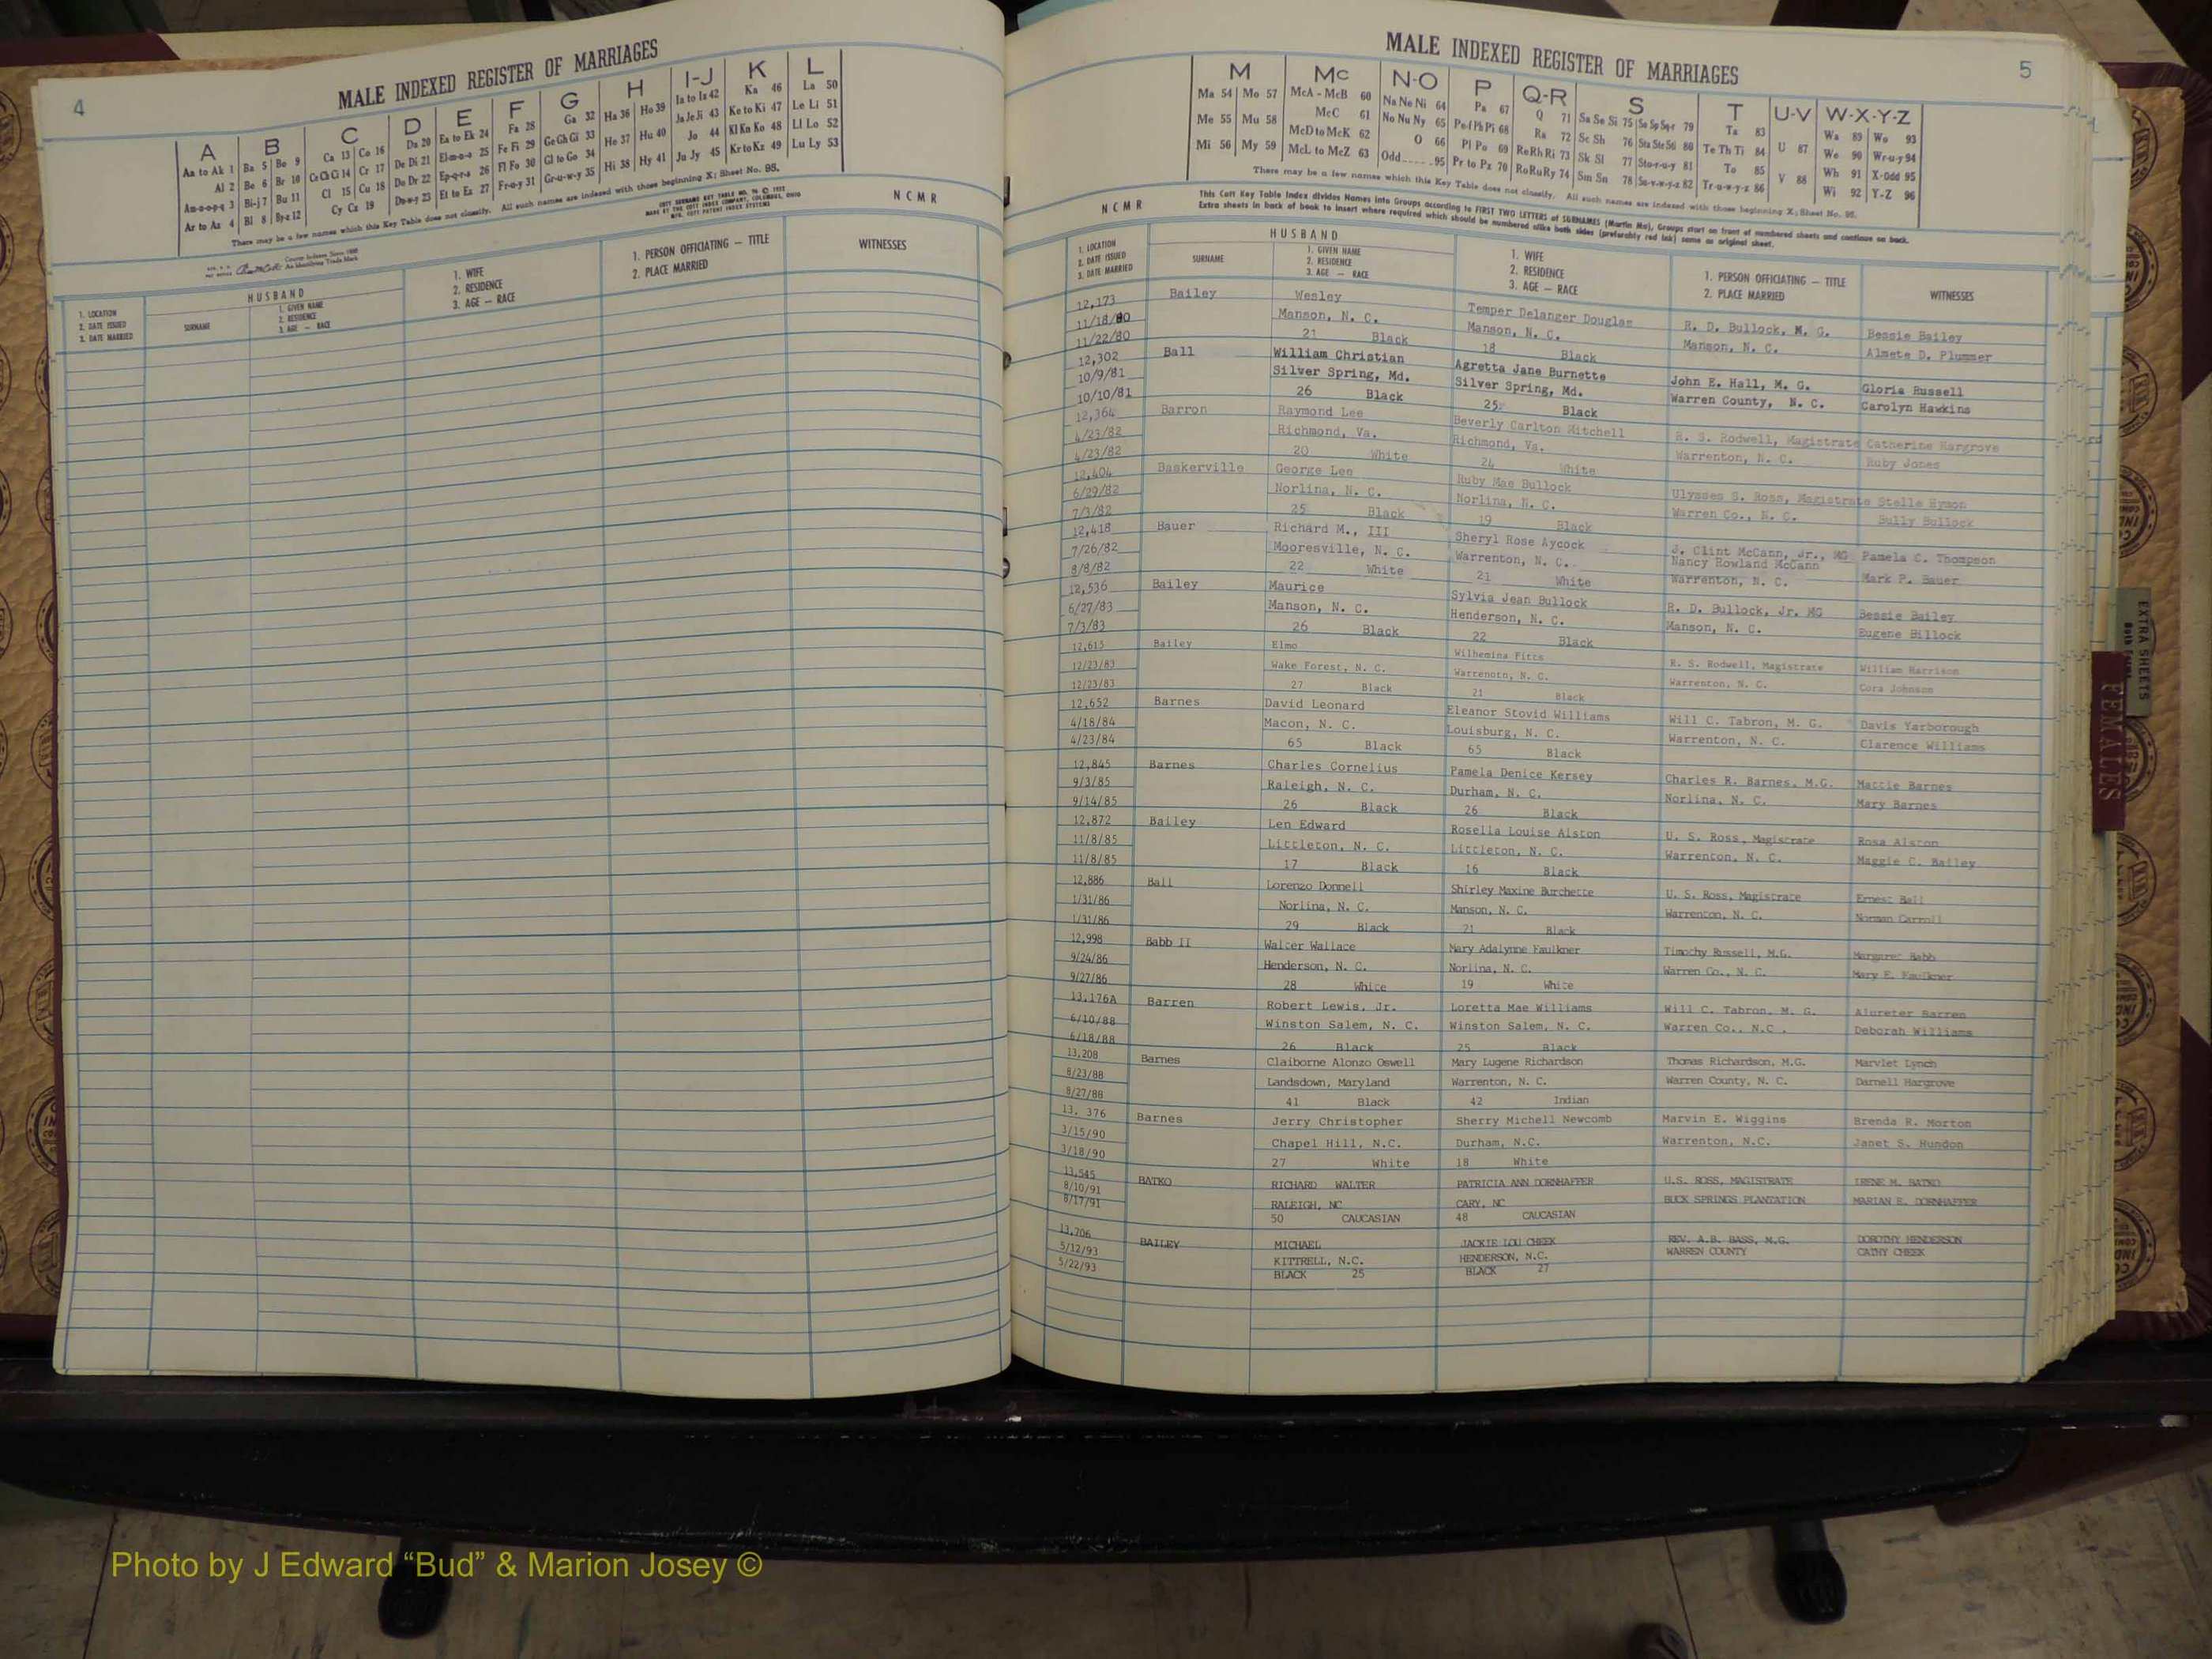 4
MALE INDEXED REGISTER OF MARRIAGES
A B C D E F G H I-J K L
Aa to Ak 1 Ba 5 Bo 9 Ca 13 Co 16 Da 20 Ea to Ek 24 Fa 28 Ga 32 Ha 36 Ho 39 Ia to Iz 42 Ka 46 La 50
Al 2 Be 6 Br 10 Ce Ch Ci 14 Cr 17 De Di 21 El-m-n-o 25 Fe Fi 29 Ge Gh Gi 33 He 37 Hu 40 Ja Je Ji 43 Ke to Ki 47 Le Li 51
Am-n-o-p-q 3 Bi-j 7 Bu 11 Cl 15 Cu 18 Do Dr 22 Ep-q-r-s 26 Fl Fo 30 Gl to Go 34 Hi 38 Hy 41 Jo 44 Kl Kn Ko 48 Ll Lo 52
Ar to Az 4 Bl 8 By-z 12 Cy Cz 19 Du-w-y 23 Et to Ez 27 Fr-u-y 31 Gr-u-w-y 35 Ju Jy 45 Kr to Kz 49 Lu Ly 53
There may be a few names which this Key Table does not classify. All such names are indexed with those beginning X; Sheet No. 95.
NCMR
HUSBAND
1. LOCATION
2. DATE ISSUED
3. DATE MARRIED
SURNAME
1. GIVEN NAME
2. RESIDENCE
3. AGE — RACE
1. WIFE
2. RESIDENCE
3. AGE — RACE
1. PERSON OFFICIATING — TITLE
2. PLACE MARRIED
WITNESSES
MALE INDEXED REGISTER OF MARRIAGES
5
M Mc N-O P Q-R S T U-V W-X-Y-Z
Ma 54 Mo 57 McA - McB 60 Na Ne Ni 64 Pa 67 Q 71 Sa Se Si 75 So Sp Sq-r 79 Ta 83 U 87 Wa 89 Wo 93
Me 55 Mu 58 McC 61 No Nu Ny 65 Pe-f Ph Pi 68 Ra 72 Sc Sh 76 Sta Ste Sti 80 Te Th Ti 84 V 88 We 90 Wr-u-y 94
Mi 56 My 59 McD to McK 62 O 66 Pl Po 69 Re Rh Ri 73 Sk Sl 77 Sto-r-u-y 81 To 85 Wh 91 X-Odd 95
McL to McZ 63 Odd 95 Pr to Pz 70 Ro Ru Ry 74 Sm Sn 78 Su-v-w-y-z 82 Tr-u-w-y-z 86 Wi 92 Y-Z 96
There may be a few names which this Key Table does not classify. All such names are indexed with those beginning X; Sheet No. 95.
This Cott Key Table Index divides Names into Groups according to FIRST TWO LETTERS of SURNAMES (Martin Ma), Groups start on front of numbered sheets and continue on back.
Extra sheets in back of book to insert where required which should be numbered alike both sides (preferably red ink) same as original sheet.
NCMR
HUSBAND
1. LOCATION
2. DATE ISSUED
3. DATE MARRIED
SURNAME
1. GIVEN NAME
2. RESIDENCE
3. AGE — RACE
1. WIFE
2. RESIDENCE
3. AGE — RACE
1. PERSON OFFICIATING — TITLE
2. PLACE MARRIED
WITNESSES
12,173 Bailey Wesley Temper Delanger Douglas R. D. Bullock, M. G. Bessie Bailey
11/18/80 Manson, N. C. Manson, N. C. Manson, N. C. Almete D. Plummer
11/22/80 21 Black 18 Black
12,302 Ball William Christian Agretta Jane Burnette John E. Hall, M. G. Gloria Russell
10/9/81 Silver Spring, Md. Silver Spring, Md. Warren County, N. C. Carolyn Hawkins
10/10/81 26 Black 25 Black
12,364 Barron Raymond Lee Beverly Carlton Mitchell R. S. Rodwell, Magistrate Catherine Hargrove
4/23/82 Richmond, Va. Richmond, Va. Warrenton, N. C. Ruby Jones
4/23/82 20 White 24 White
12,404 Baskerville George Lee Ruby Mae Bullock Ulysses S. Ross, Magistrate Stelle Hymon
6/29/82 Norlina, N. C. Norlina, N. C. Warren Co., N. C. Bully Bullock
7/3/82 25 Black 19 Black
12,418 Bauer Richard M., III Sheryl Rose Aycock J. Clint McCann, Jr., MG Pamela C. Thompson
Nancy Rowland McCann
7/26/82 Mooresville, N. C. Warrenton, N. C. Warrenton, N. C. Mark P. Bauer
8/8/82 22 White 21 White
12,536 Bailey Maurice Sylvia Jean Bullock R. D. Bullock, Jr. MG Bessie Bailey
6/27/83 Manson, N. C. Henderson, N. C. Manson, N. C. Eugene Billock
7/3/83 26 Black 22 Black
12,615 Bailey Elmo Wilhemina Fitts R. S. Rodwell, Magistrate William Harrison
12/23/83 Wake Forest, N. C. Warrenotn, N. C. Warrenton, N. C. Cora Johnson
12/23/83 27 Black 21 Black
12,652 Barnes David Leonard Eleanor Stovid Williams Will C. Tabron, M. G. Davis Yarborough
4/18/84 Macon, N. C. Louisburg, N. C. Warrenton, N. C. Clarence Williams
4/23/84 65 Black 65 Black
12,845 Barnes Charles Cornelius Pamela Denice Kersey Charles R. Barnes, M.G. Mattie Barnes
9/3/85 Raleigh, N. C. Durham, N. C. Norlina, N. C. Mary Barnes
9/14/85 26 Black 26 Black
12,872 Bailey Len Edward Rosella Louise Alston U. S. Ross, Magistrate Rosa Alston
11/8/85 Littleton, N. C. Littleton, N. C. Warrenton, N. C. Maggie C. Bailey
11/8/85 17 Black 16 Black
12,886 Ball Lorenzo Donnell Shirley Maxine Burchette U. S. Ross, Magistrate Ernest Ball
1/31/86 Norlina, N. C. Manson, N. C. Warrenton, N. C. Norman Carroll
1/31/86 29 Black 21 Black
12,998 Babb II Walter Wallace Mary Adalynne Faulkner Timothy Russell, M.G. Margaret Babb
9/24/86 Henderson, N. C. Norlina, N. C. Warren Co., N. C. Mary E. Faulkner
9/27/86 28 White 19 White
13,176A Barren Robert Lewis, Jr. Loretta Mae Williams Will C. Tabron, M. G. Alureter Barren
6/10/88 Winston Salem, N. C. Winston Salem, N. C. Warren Co., N.C. Deborah Williams
6/18/88 26 Black 25 Black
13,208 Barnes Claiborne Alonzo Oswell Mary Lugene Richardson Thomas Richardson, M.G. Marvlet Lynch
8/23/88 Landsdown, Maryland Warrenton, N. C. Warren County, N. C. Darnell Hargrove
8/27/88 41 Black 42 Indian
13, 376 Barnes Jerry Christopher Sherry Michell Newcomb Marvin E. Wiggins Brenda R. Morton
3/15/90 Chapel Hill, N.C. Durham, N.C. Warrenton, N.C. Janet S. Hundon
3/18/90 27 White 18 White
13,545 BATKO RICHARD WALTER PATRICIA ANN DORNHAFFER U.S. ROSS, MAGISTRATE IRENE M. BATKO
8/10/91 RALEIGH, NC CARY, NC BUCK SPRINGS PLANTATION MARIAN E. DORNHAFFER
8/17/91 50 CAUCASIAN 48 CAUCASIAN
13,706 BAILEY MICHAEL JACKIE LOU CHEEK REV. A.B. BASS, M.G. DOROTHY HENDERSON
5/12/93 KITTRELL, N.C. HENDERSON, N.C. WARREN COUNTY CATHY CHEEK
5/22/93 BLACK 25 BLACK 27
EXTRA SHEETS
FEMALES
Photo by J Edward “Bud” & Marion Josey ©